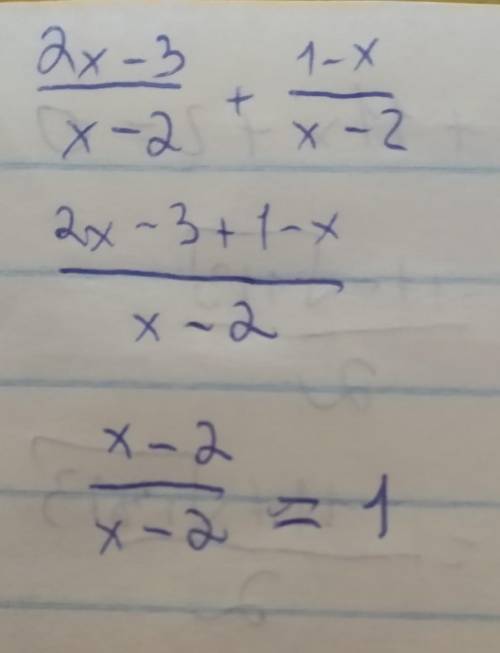 2x-3/x-2 + 1-x/x-2
2x-3+1-x/x-2
x-2/x-2 = 1